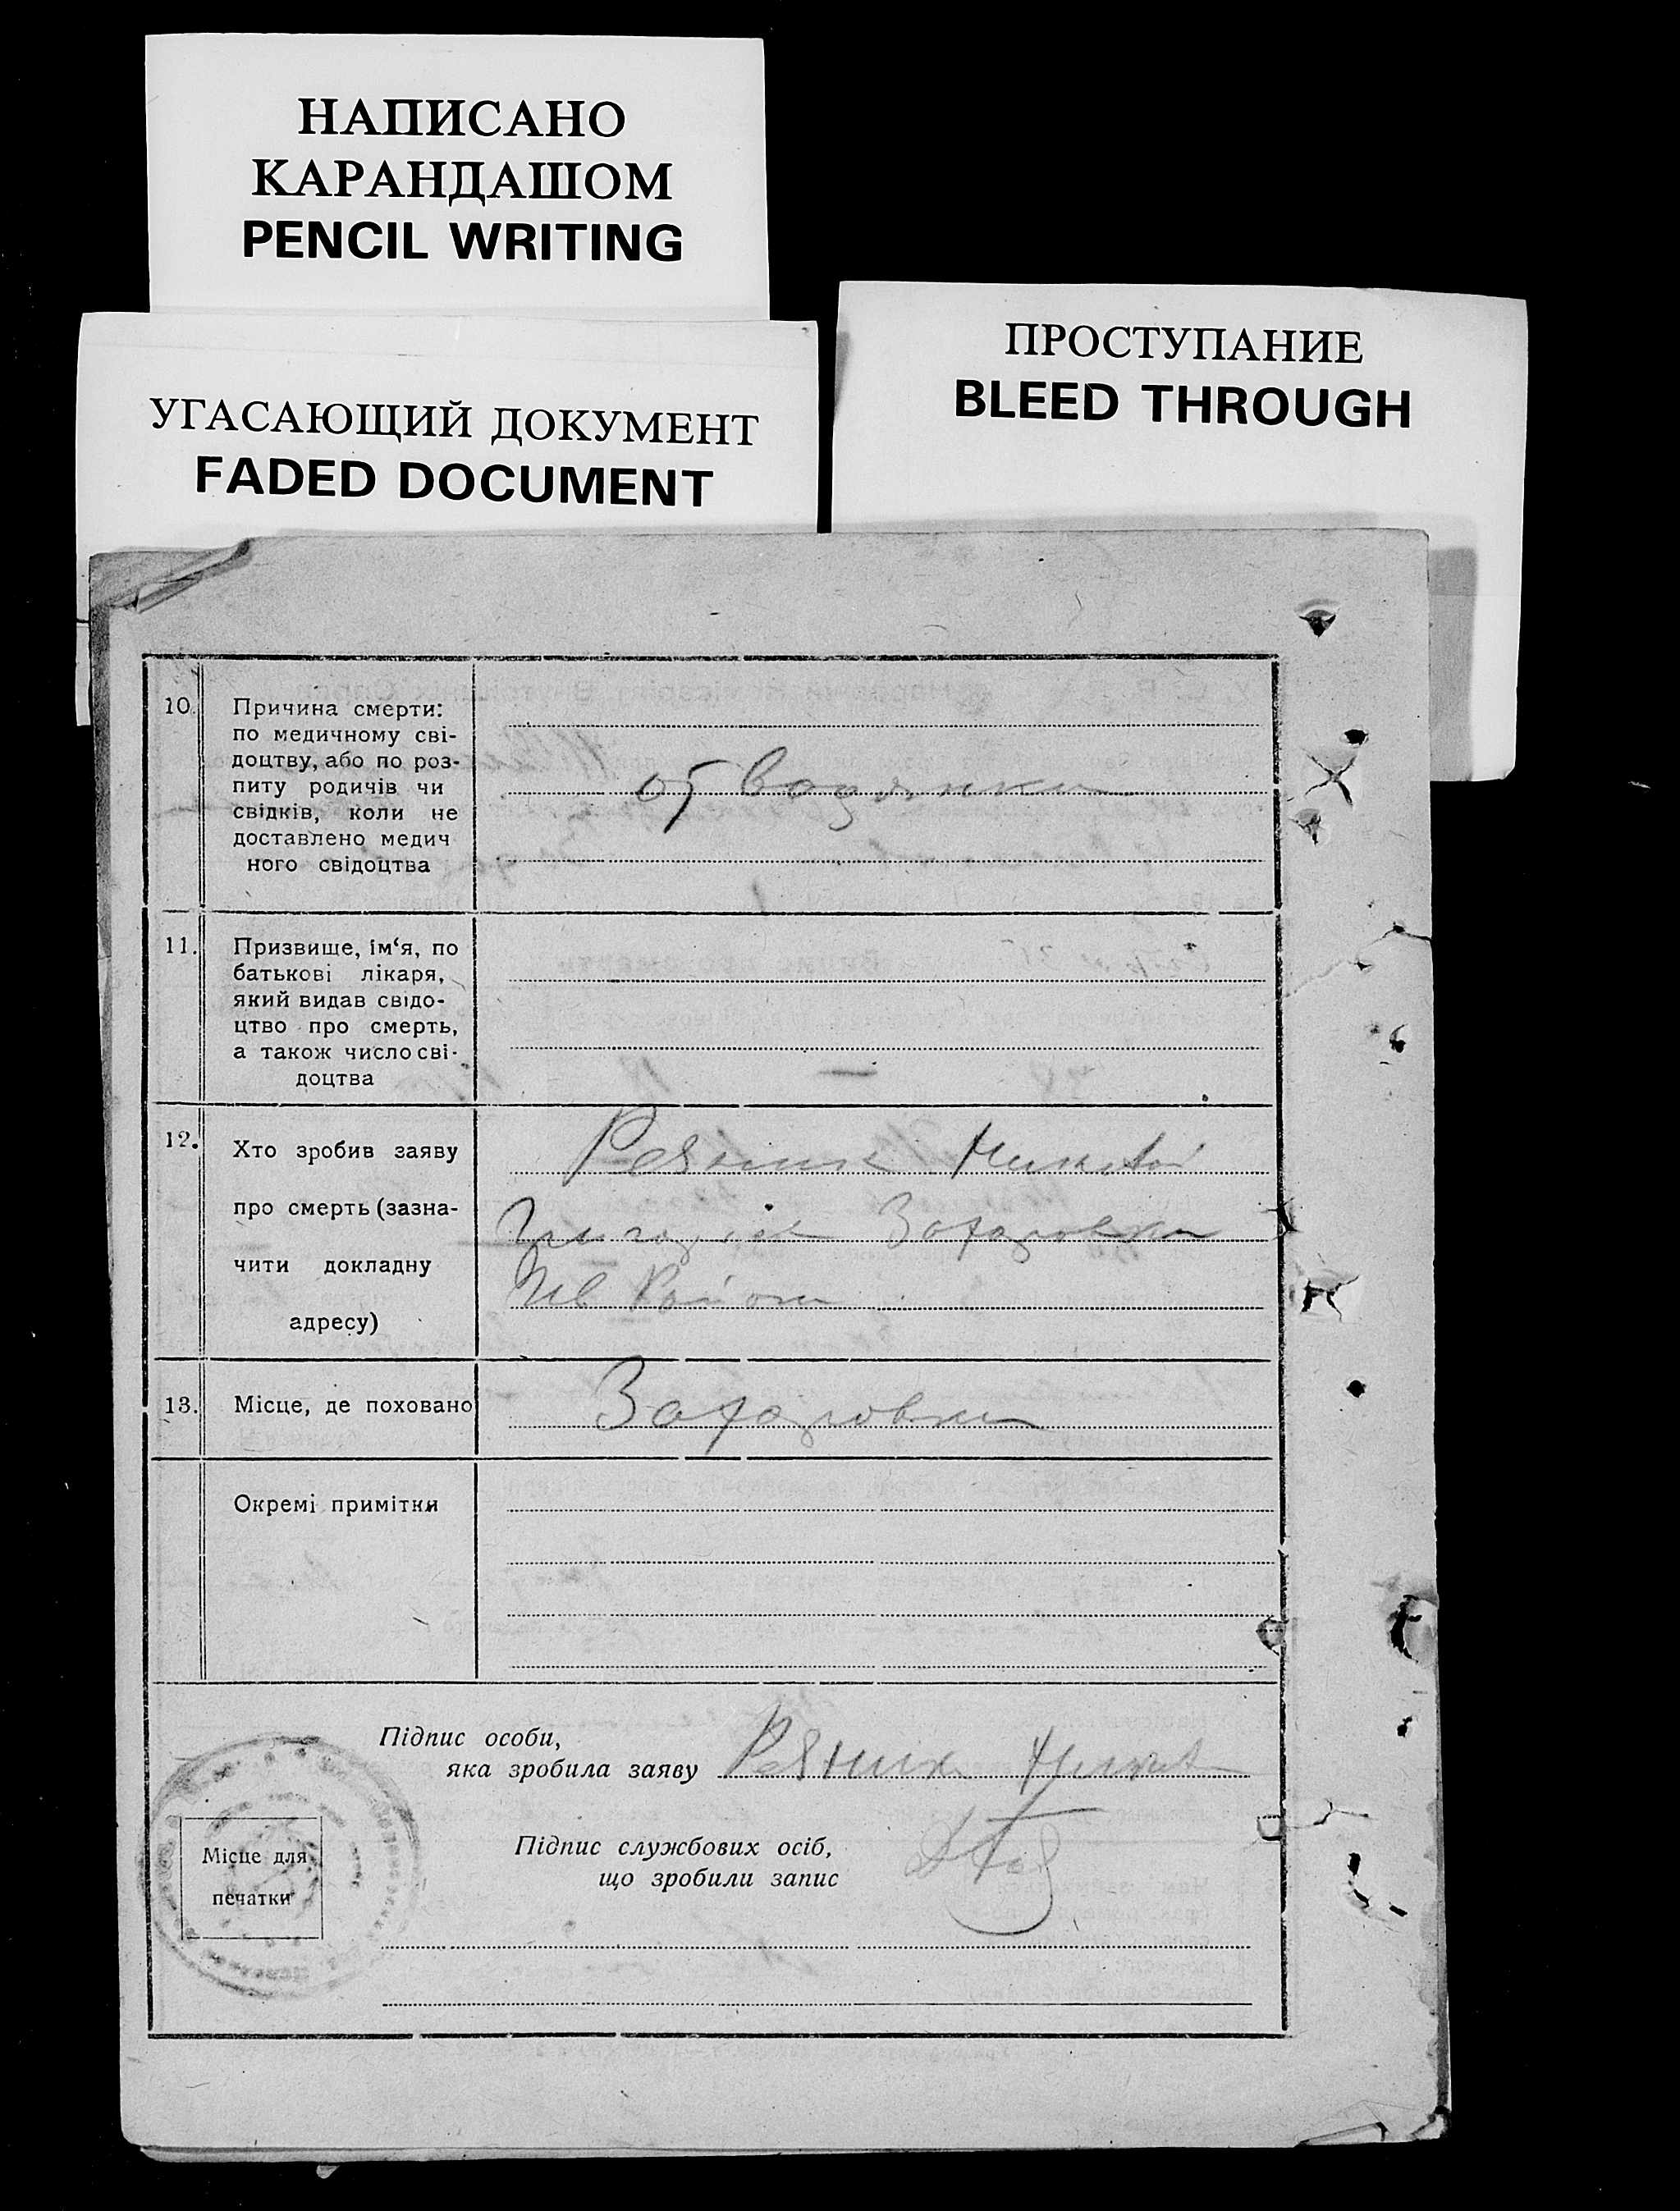 НАПИСАНО
КАРАНДАШОМ
PENCIL WRITING
УГАСАЮЩИЙ ДОКУМЕНТ
FADED DOCUMENT
ПРОСТУПАНИЕ
BLEED THROUGH
10. Причина смерти:
по медичному сві-
доцтву, або по роз-
питу родичів чи
свідків, коли не
доставлено медич
ного свідоцтва
от водянки
11. Призвище, ім‘я, по
батькові лікаря,
який видав свідо-
цтво про смерть,
а також число сві-
доцтва
12. Хто зробив заяву
про смерть (зазна-
чити докладну
адресу)
Резник
Захаровка
Район
13. Місце, де поховано
Захаровка
Окремі примітки
Підпис особи,
яка зробила заяву Резник
Підпис службових осіб,
що зробили запис
Місце для
печатки